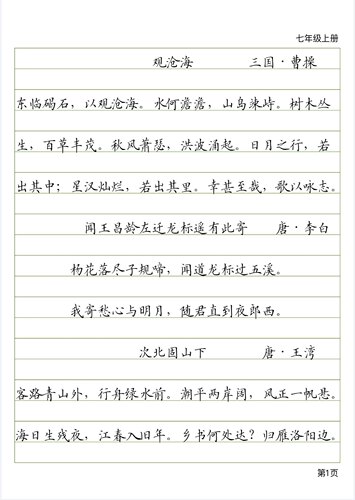 七年级上册
观沧海 三国·曹操
东临碣石，以观沧海。水何澹澹，山岛竦峙。树木丛
生，百草丰茂。秋风萧瑟，洪波涌起。日月之行，若
出其中；星汉灿烂，若出其里。幸甚至哉，歌以咏志。
闻王昌龄左迁龙标遥有此寄 唐·李白
杨花落尽子规啼，闻道龙标过五溪。
我寄愁心与明月，随君直到夜郎西。
次北固山下 唐·王湾
客路青山外，行舟绿水前。潮平两岸阔，风正一帆悬。
海日生残夜，江春入旧年。乡书何处达？归雁洛阳边。
第1页